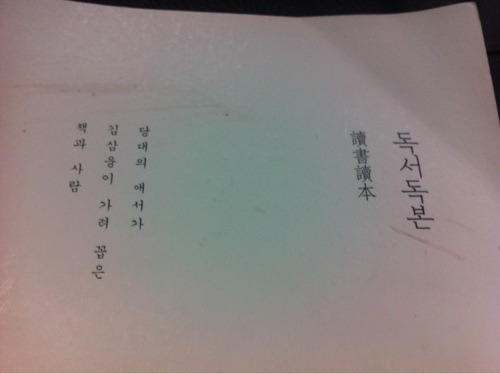 독서독본
讀書讀本
당대의 애서가
김삼웅이 가려 꼽은
책과 사람